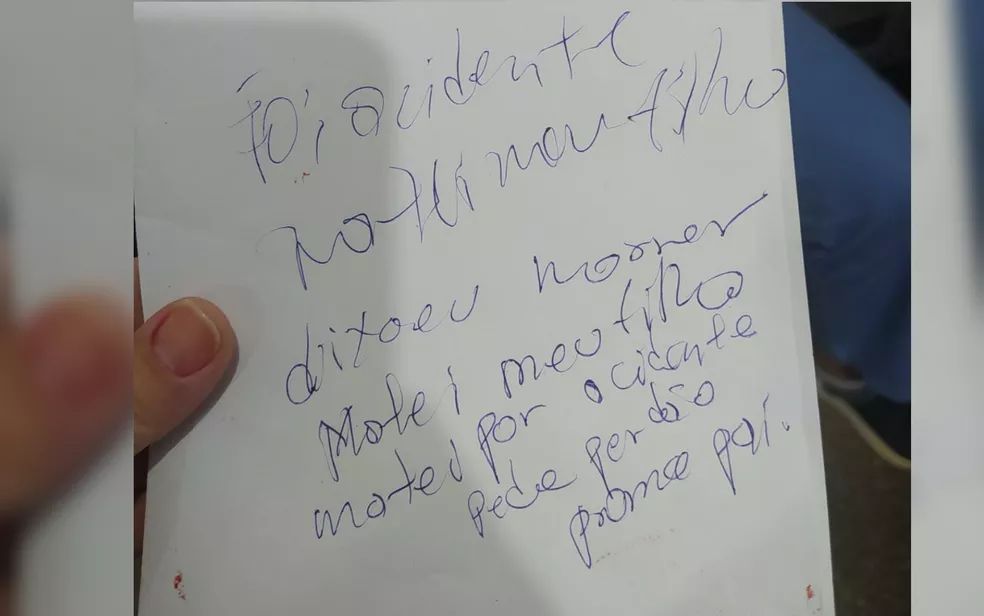 Foi acidente
matei meu filho
dixoeu morrer
Matei meu filho
matei por acidante
pede perdão
prome pai.